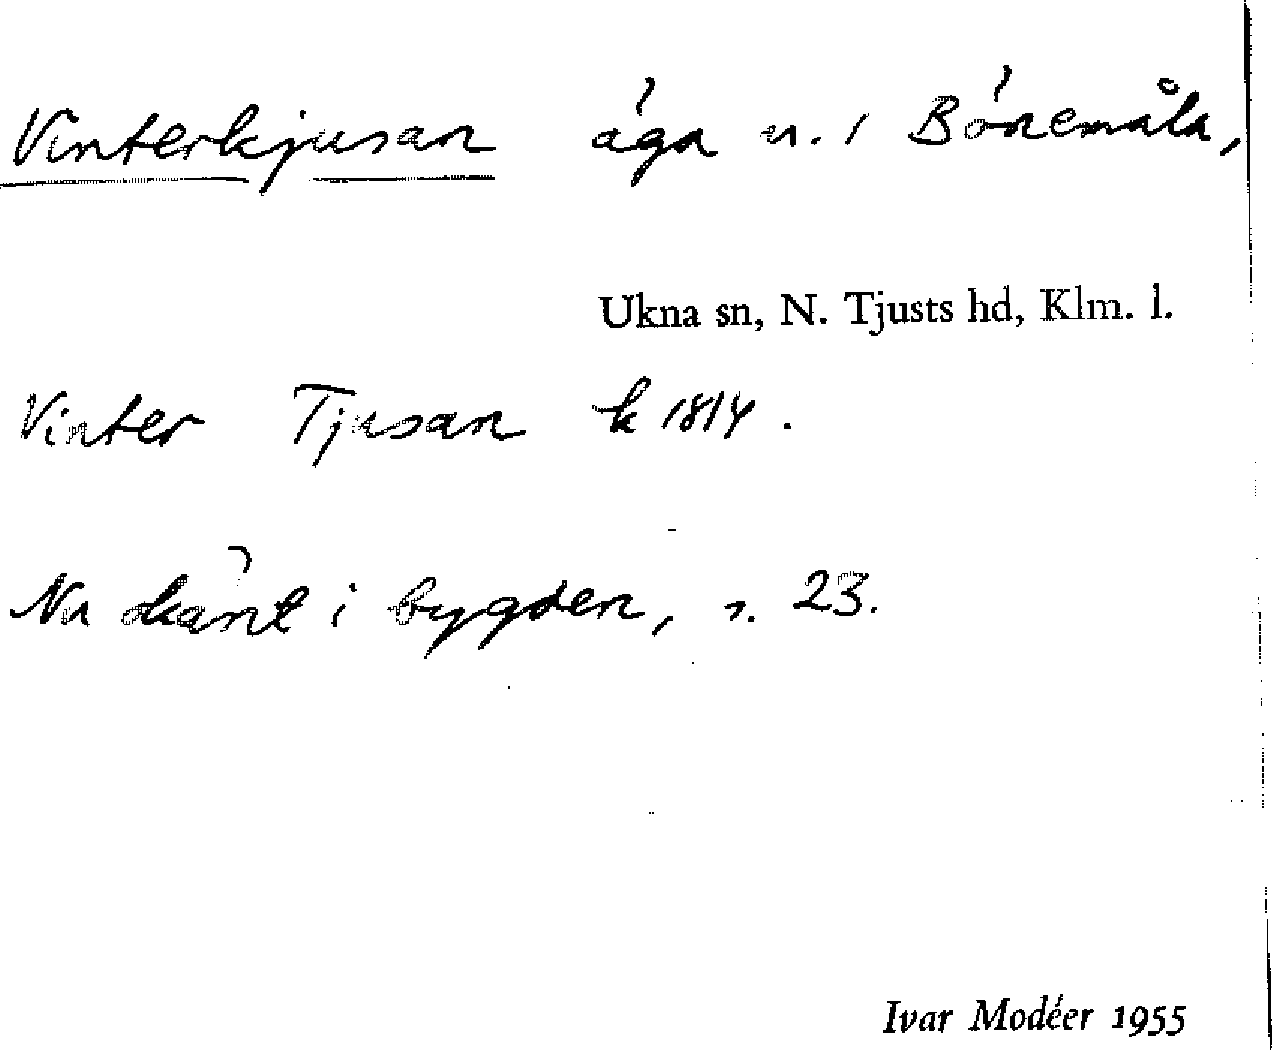 Vinterkjusan äga u. i Bönemåla,
Ukna sn, N. Tjusts hd, Klm. l.
Vinter Tjusan k 1814.
Nu okänt i bygden, s. 23.
Ivar Modéer 1955